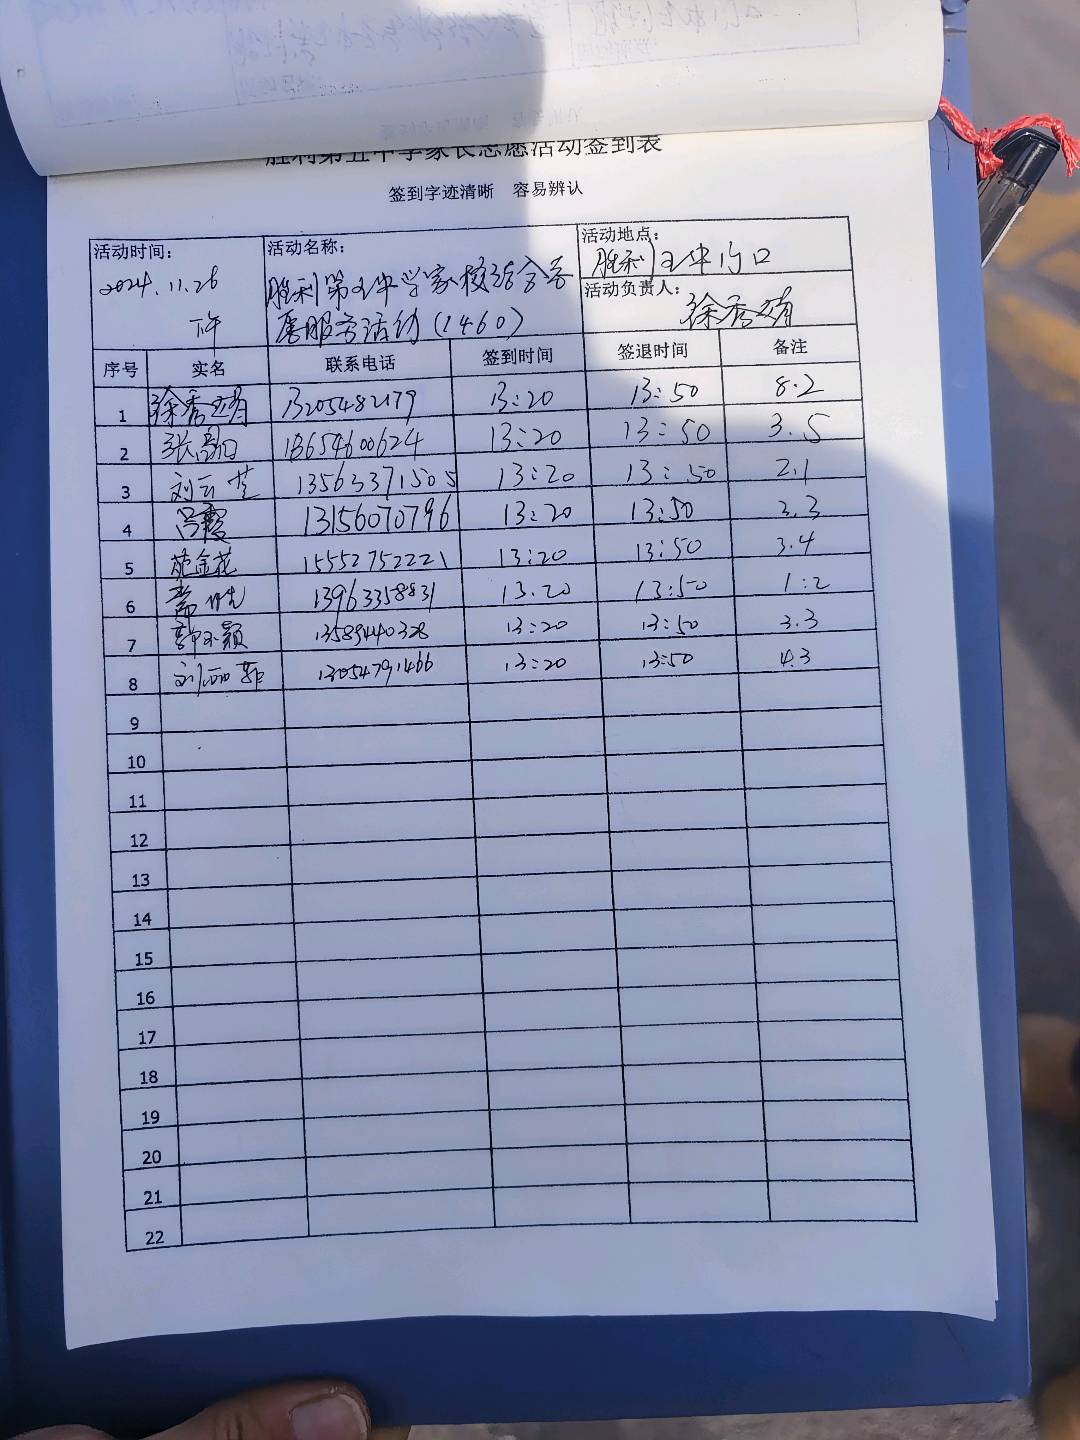 胜利第五中学家长志愿活动签到表
签到字迹清晰 容易辨认
活动时间：
2024.11.26
下午
活动名称：
胜利第五中学家校结合志
愿服务活动(1460)
活动地点：
胜利五中门口
活动负责人：
徐秀娟
序号 实名 联系电话 签到时间 签退时间 备注
1 徐秀娟 13205482179 13:20 13:50 8.2
2 张 18654600624 13:20 13:50 3.5
3 刘云芝 13563371505 13:20 13:50 2.1
4 吕霞 13156070796 13:20 13:50 3.3
5 苑金花 15552752221 13:20 13:50 3.4
6 13963358831 13:20 13:50 1:2
7 郭玉颖 13589440328 13:20 13:50 3.3
8 刘丽 13054791466 13:20 13:50 4.3
9
10
11
12
13
14
15
16
17
18
19
20
21
22